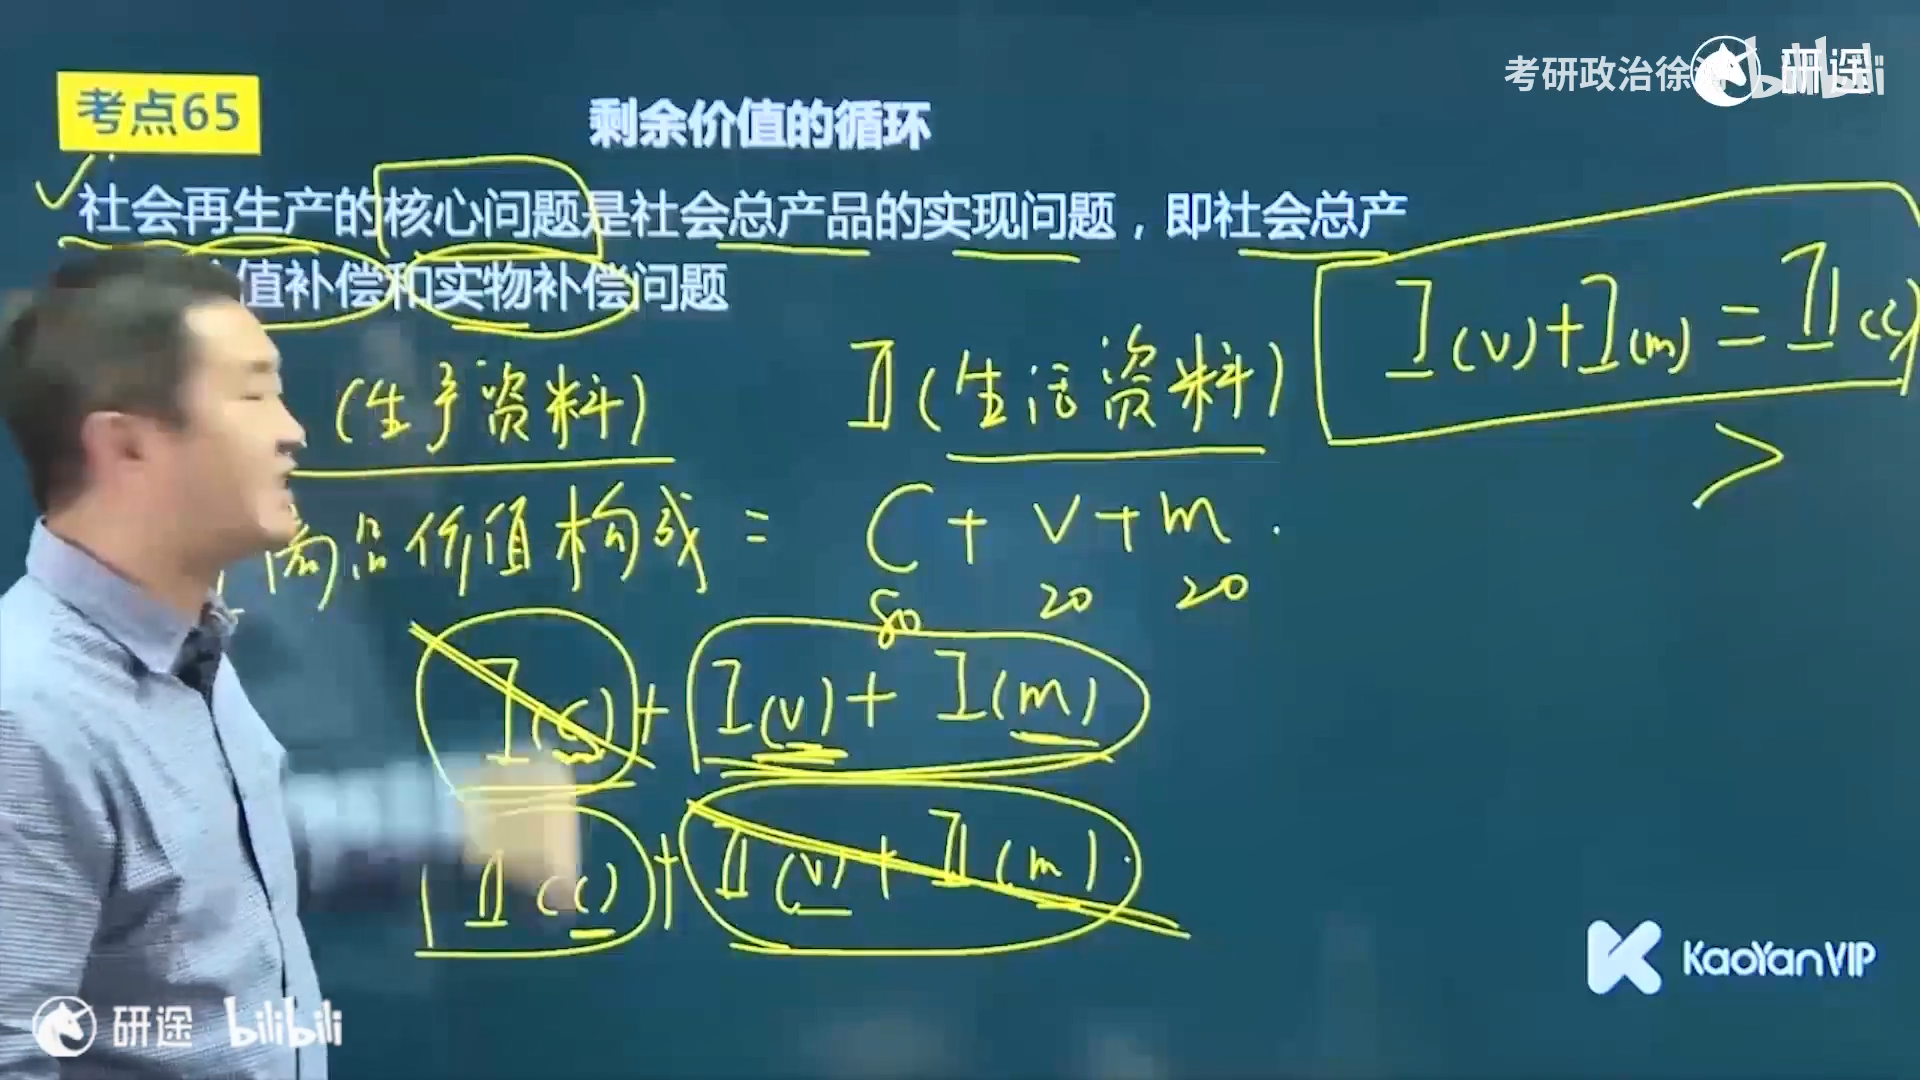 考研政治徐
研途
bilibili
考点65
剩余价值的循环
社会再生产的核心问题是社会总产品的实现问题，即社会总产
值补偿和实物补偿问题
I(v)+I(m)=II(c)
>
(生产资料)
II(生活资料)
商品价值构成 = C + v + m
80 20 20
I(c) + I(v) + I(m)
II(c) + II(v) + II(m)
KaoYanVIP
研途 bilibili